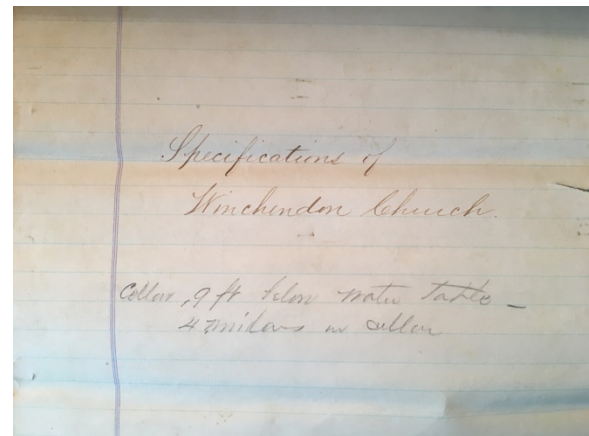 Specifications of
Winchendon Church.
Cellar, 9 ft below water table —
4 windows in cellar